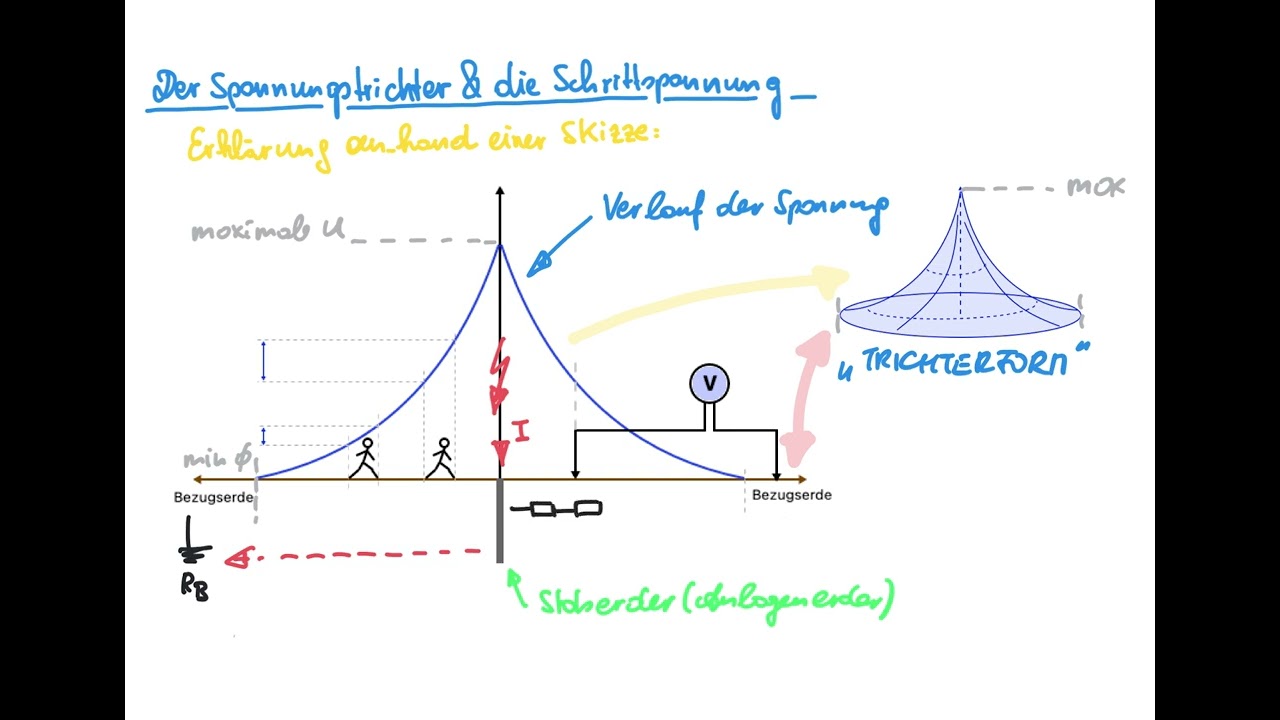 Der Spannungstrichter & die Schrittspannung
Erklärung an-hand einer Skizze:
Verlauf der Spannung
max
maximale U
"TRICHTERFORM"
V
I
min φ
Bezugserde
Bezugserde
RB
Staberder (Anlagenerder)